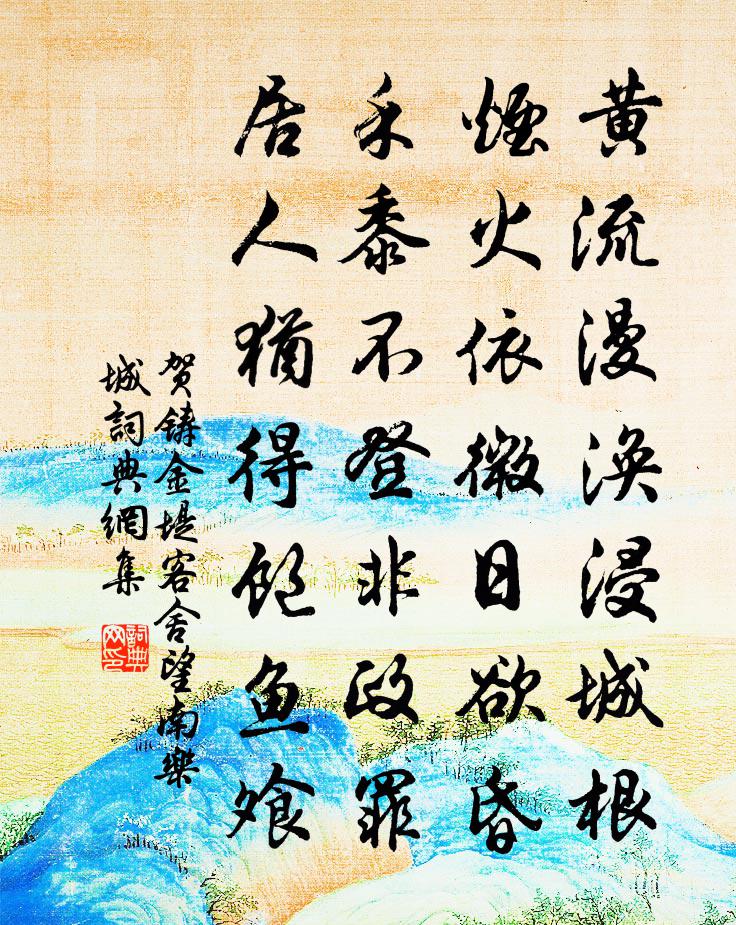 黄流漫涣浸城根
煙火依微日欲昏
禾黍不登非政罪
居人猶得飽魚飧
贺鑄金堤客舍望南樂
城詞典網集
詞典
网印